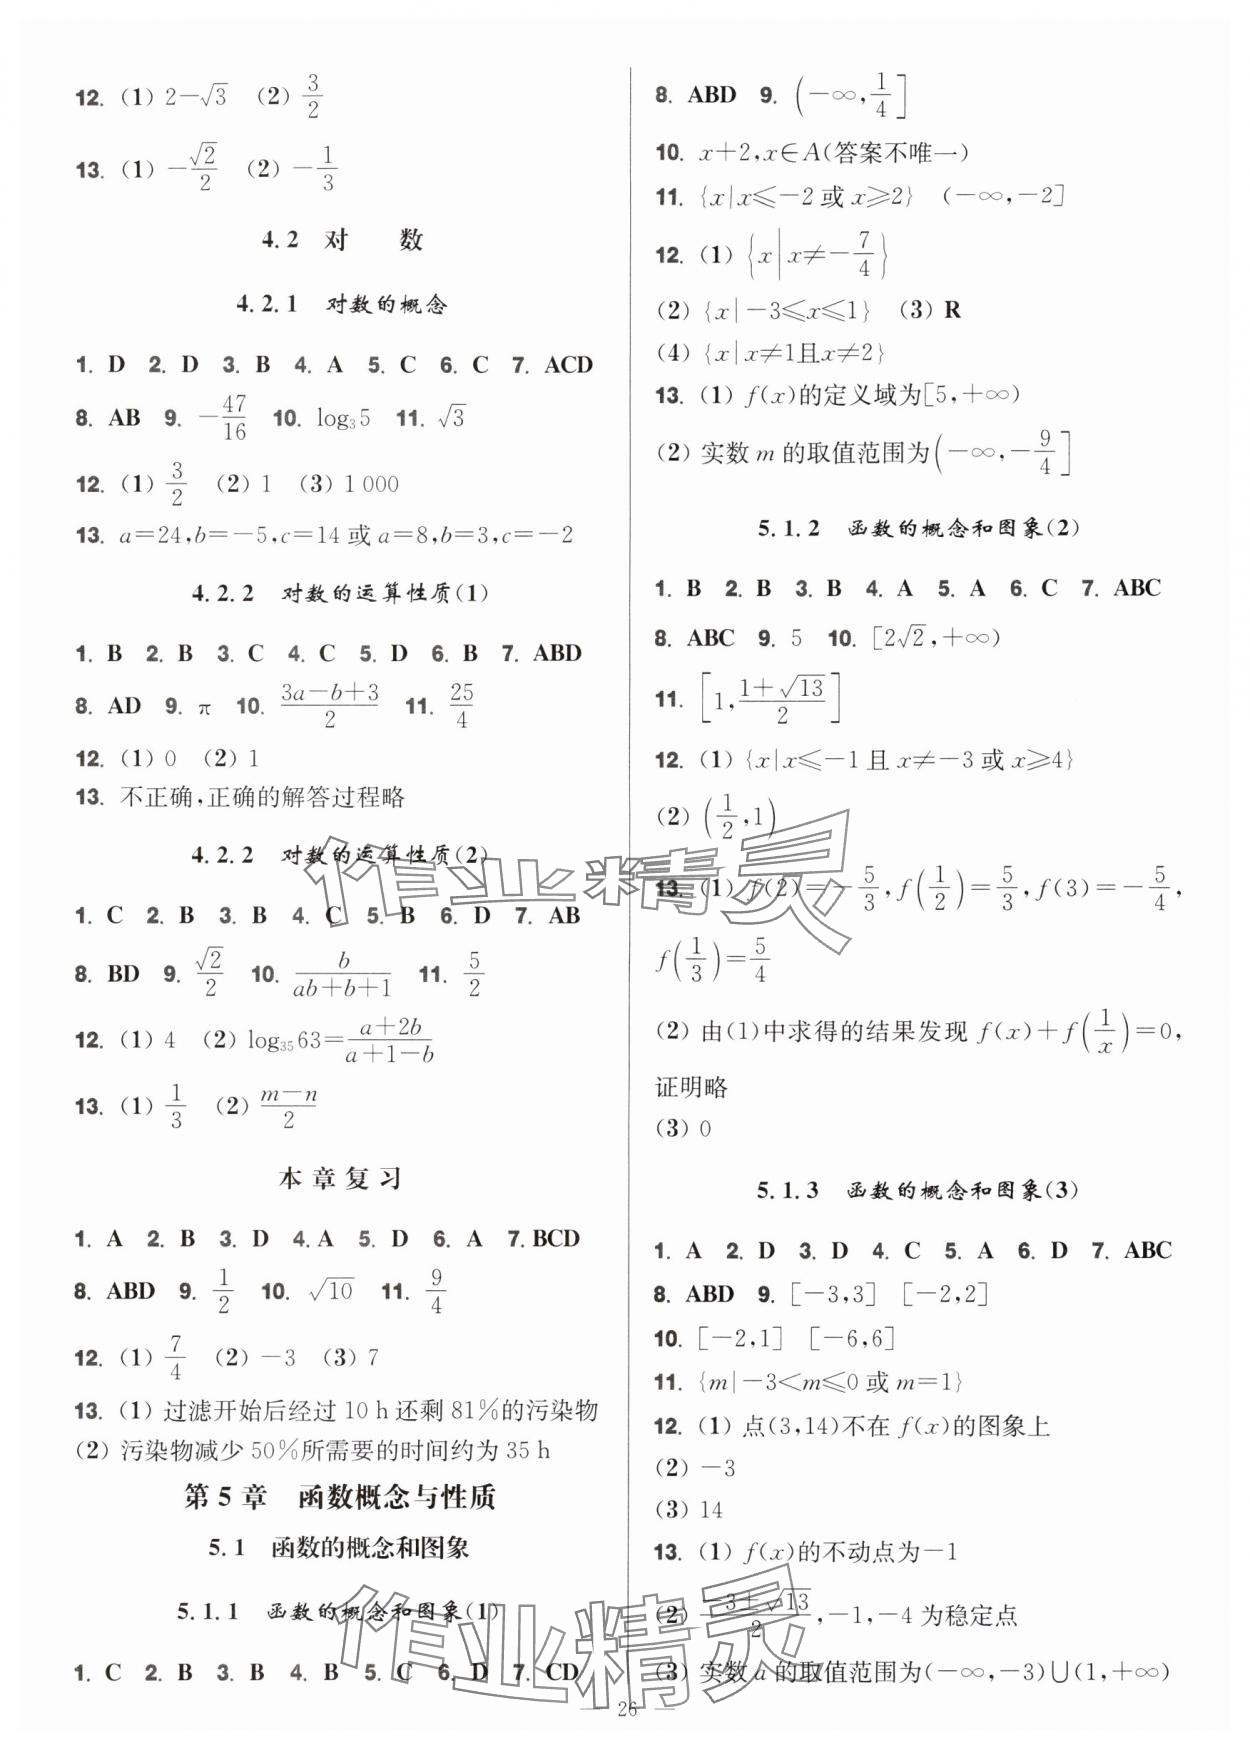 12. (1) 2-√3 (2) 3/2
13. (1) -√2/2 (2) -1/3
4.2 对 数
4.2.1 对数的概念
1. D 2. D 3. B 4. A 5. C 6. C 7. ACD
8. AB 9. -47/16 10. log₃5 11. √3
12. (1) 3/2 (2) 1 (3) 1 000
13. a=24,b=-5,c=14 或 a=8,b=3,c=-2
4.2.2 对数的运算性质(1)
1. B 2. B 3. C 4. C 5. D 6. B 7. ABD
8. AD 9. π 10. (3a-b+3)/2 11. 25/4
12. (1) 0 (2) 1
13. 不正确,正确的解答过程略
4.2.2 对数的运算性质(2)
1. C 2. B 3. B 4. C 5. B 6. D 7. AB
8. BD 9. √2/2 10. b/(ab+b+1) 11. 5/2
12. (1) 4 (2) log₃₅63=(a+2b)/(a+1-b)
13. (1) 1/3 (2) (m-n)/2
本章复习
1. A 2. B 3. D 4. A 5. D 6. A 7. BCD
8. ABD 9. 1/2 10. √10 11. 9/4
12. (1) 7/4 (2) -3 (3) 7
13. (1) 过滤开始后经过 10 h 还剩 81%的污染物
(2) 污染物减少 50%所需要的时间约为 35 h
第 5 章 函数概念与性质
5.1 函数的概念和图象
5.1.1 函数的概念和图象(1)
1. C 2. B 3. B 4. B 5. C 6. D 7. CD
8. ABD 9. (-∞,1/4]
10. x+2,x∈A(答案不唯一)
11. {x|x≤-2 或 x≥2} (-∞,-2]
12. (1) {x|x≠-7/4}
(2) {x|-3≤x≤1} (3) R
(4) {x|x≠1且x≠2}
13. (1) f(x)的定义域为[5,+∞)
(2) 实数 m 的取值范围为(-∞,-9/4]
5.1.2 函数的概念和图象(2)
1. B 2. B 3. B 4. A 5. A 6. C 7. ABC
8. ABC 9. 5 10. [2√2,+∞)
11. [1,(1+√13)/2]
12. (1) {x|x≤-1 且 x≠-3 或 x≥4}
(2) (1/2,1)
13. (1) f(2)=-5/3,f(1/2)=5/3,f(3)=-5/4,
f(1/3)=5/4
(2) 由(1)中求得的结果发现 f(x)+f(1/x)=0,
证明略
(3) 0
5.1.3 函数的概念和图象(3)
1. A 2. D 3. D 4. C 5. A 6. D 7. ABC
8. ABD 9. [-3,3] [-2,2]
10. [-2,1] [-6,6]
11. {m|-3<m≤0 或 m=1}
12. (1) 点(3,14)不在 f(x)的图象上
(2) -3
(3) 14
13. (1) f(x)的不动点为-1
(2) (-3±√13)/2,-1,-4 为稳定点
(3) 实数 a 的取值范围为(-∞,-3)∪(1,+∞)
26
作业精灵
作业精灵